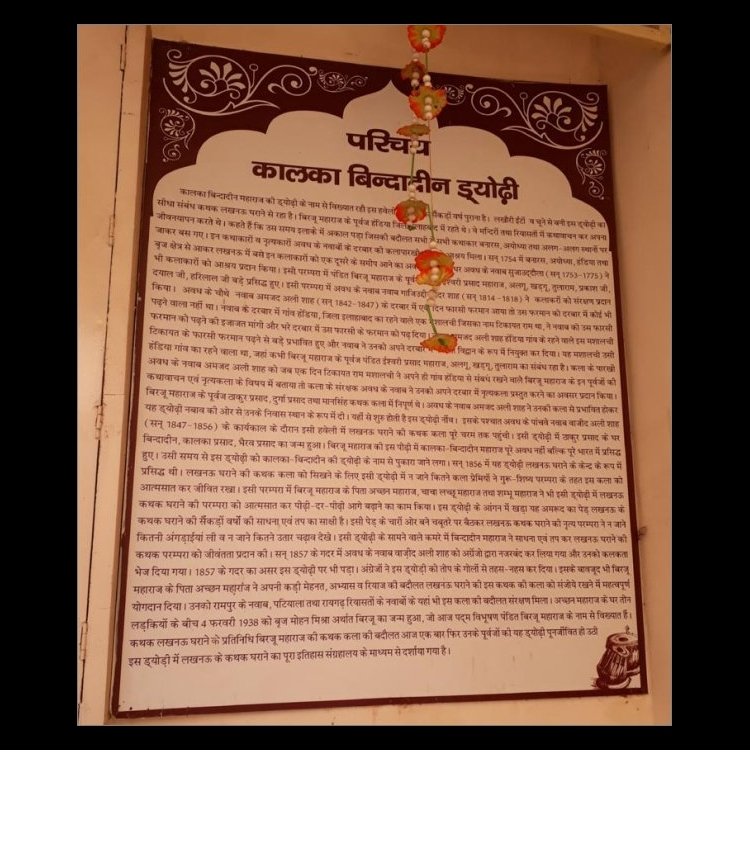 परिचय
कालका बिन्दादीन ड्योढ़ी
कालका बिन्दादीन महाराज की ड्योढ़ी के नाम से विख्यात रही इस हवेली सैंकड़ों वर्ष पुराना है। लखौरी ईंटों व चूने से बनी इस ड्योढ़ी का
सीधा संबंध कथक लखनऊ घराने से रहा है। बिरजू महाराज के पूर्वज हंडिया में रहते थे। वे मन्दिरों तथा रियासतों में कथावाचन कर अपना
जीवनयापन करते थे। कहते हैं कि उस समय इलाके में अकाल पड़ा जिसकी बदौलत सभी कथाकार बनारस, अयोध्या तथा अलग-अलग स्थानों पर
जाकर बस गए। इन कथाकारों व नृत्यकारों अवध के नवाबों के दरबार की मिला। सन् 1754 में बनारस, अयोध्या, हंडिया तथा
बृज क्षेत्र से आकर लखनऊ में बसे इन कलाकारों को एक दूसरे के समीप आने का पर अवध के नवाब सुजाउद्दौला (सन् 1753-1775) ने
भी कलाकारों को आश्रय प्रदान किया। इसी परम्परा में पंडित बिरजू महाराज के प्रसाद महाराज, अलगू, खड़गू, तुलाराम, प्रकाश जी,
दयाल जी, हरिलाल जी बड़े प्रसिद्ध हुए। इसी परम्परा में अवध के नवाब नवाब शाह (सन् 1814-1818) ने कलाकारों को संरक्षण प्रदान
किया। अवध के चौथे नवाब अमजद अली शाह (सन् 1842-1847) के दरबार में दिन फारसी फरमान आया तो उस फरमान को दरबार में कोई भी
पढ़ने वाला नहीं था। नवाब के दरबार में गांव हंडिया, जिला इलाहाबाद का रहने वाले एक मशालची जिसका नाम टिकायत राम था, ने नवाब को उस फारसी
फरमान को पढ़ने की इजाजत मांगी और भरे दरबार में उस फारसी के फरमान को पढ़ दिया। अली शाह हंडिया गांव के रहने वाले इस मशालची
टिकायत के फारसी फरमान पढ़ने से बड़े प्रभावित हुए और नवाब ने उनको अपने दरबार विद्वान के रूप में नियुक्त कर दिया। यह मशालची उसी
हंडिया गांव का रहने वाला था, जहां कभी बिरजू महाराज के पूर्वज पंडित ईश्वरी प्रसाद महाराज, अलगू, खड़गू, तुलाराम का संबंध रहा है। कला के पारखी
अवध के नवाब अमजद अली शाह को जब एक दिन टिकायत राम मशालची ने अपने ही गांव हंडिया से संबंध रखने वाले बिरजू महाराज के इन पूर्वजों की
कथावाचन एवं नृत्यकला के विषय में बताया तो कला के संरक्षक अवध के नवाब ने उनको अपने दरबार में नृत्यकला प्रस्तुत करने का अवसर प्रदान किया।
बिरजू महाराज के पूर्वज ठाकुर प्रसाद, दुर्गा प्रसाद तथा मानसिंह कथक कला में निपुण थे। अवध के नवाब अमजद अली शाह ने उनकी कला से प्रभावित होकर
यह ड्योढ़ी नबाव की ओर से उनके निवास स्थान के रूप में दी। यहाँ से शुरु होती है इस ड्योढ़ी नींव। इसके पश्चात अवध के पांचवे नवाब वाजीद अली शाह
(सन् 1847-1856) के कार्यकाल के दौरान इसी हवेली में लखनऊ घराने की कथक कला पूरे चरम तक पहुंची। इसी ड्योढ़ी में ठाकुर प्रसाद के घर
बिन्दादीन, कालका प्रसाद, भैरव प्रसाद का जन्म हुआ। बिरजू महाराज को इस पीढ़ी में कालका-बिन्दादीन महाराज पूरे अवध नहीं बल्कि पूरे भारत में प्रसिद्ध
हुए। उसी समय से इस ड्योढ़ी को कालका-बिन्दादीन की ड्योढ़ी के नाम से पुकारा जाने लगा। सन् 1856 में यह ड्योढ़ी लखनऊ घराने के केन्द्र के रूप में
प्रसिद्ध थी। लखनऊ घराने की कथक कला को सिखने के लिए इसी ड्योढ़ी में न जाने कितने कला प्रेमियों ने गुरू-शिष्य परम्परा के तहत इस कला को
आत्मसात कर जीवित रखा। इसी परम्परा में बिरजू महाराज के पिता अच्छन महाराज, चाचा लच्छू महाराज तथा शम्भू महाराज ने भी इसी ड्योढ़ी में लखनऊ
कथक घराने की परम्परा को आत्मसात कर पीढ़ी-दर-पीढ़ी आगे बढ़ाने का काम किया। इस ड्योढ़ी के आंगन में खड़ा यह अमरूद का पेड़ लखनऊ के
कथक घराने की सैंकड़ों वर्षों की साधना एवं तप का साक्षी है। इसी पेड़ के चारों ओर बने चबूतरे पर बैठकर लखनऊ कथक घराने की नृत्य परम्परा ने न जाने
कितनी अंगड़ाईयां ली व न जाने कितने उतार चढ़ाव देखे। इसी ड्योढ़ी के सामने वाले कमरे में बिन्दादीन महाराज ने साधना एवं तप कर लखनऊ घराने की
कथक परम्परा को जीवंतता प्रदान की। सन् 1857 के गदर में अवध के नवाब वाजीद अली शाह को अंग्रेजों द्वारा नजरबंद कर लिया गया और उनको कलकता
भेज दिया गया। 1857 के गदर का असर इस ड्योढ़ी पर भी पड़ा। अंग्रेजों ने इस ड्योढ़ी को तोप के गोलों से तहस-नहस कर दिया। इसके बावजूद भी बिरजू
महाराज के पिता अच्छन महारांज ने अपनी कड़ी मेहनत, अभ्यास व रियाज की बदौलत लखनऊ घराने की इस कथक की कला को संजोये रखने में महत्वपूर्ण
योगदान दिया। उनको रामपुर के नवाब, पटियाला तथा रायगढ़ रियासतों के नवाबों के यहां भी इस कला की बदौलत संरक्षण मिला। अच्छन महाराज के घर तीन
लड़कियों के बीच 4 फरवरी 1938 को बृज मोहन मिश्रा अर्थात बिरजू का जन्म हुआ, जो आज पद्म विभूषण पंडित बिरजू महाराज के नाम से विख्यात हैं।
कथक लखनऊ घराने के प्रतिनिधि बिरजू महाराज की कथक कला की बदौलत आज एक बार फिर उनके पूर्वजों की यह ड्योढ़ी पूनर्जीवित हो उठी
इस ड्योड़ी में लखनऊ के कथक घराने का पूरा इतिहास संग्रहालय के माध्यम से दर्शाया गया है।